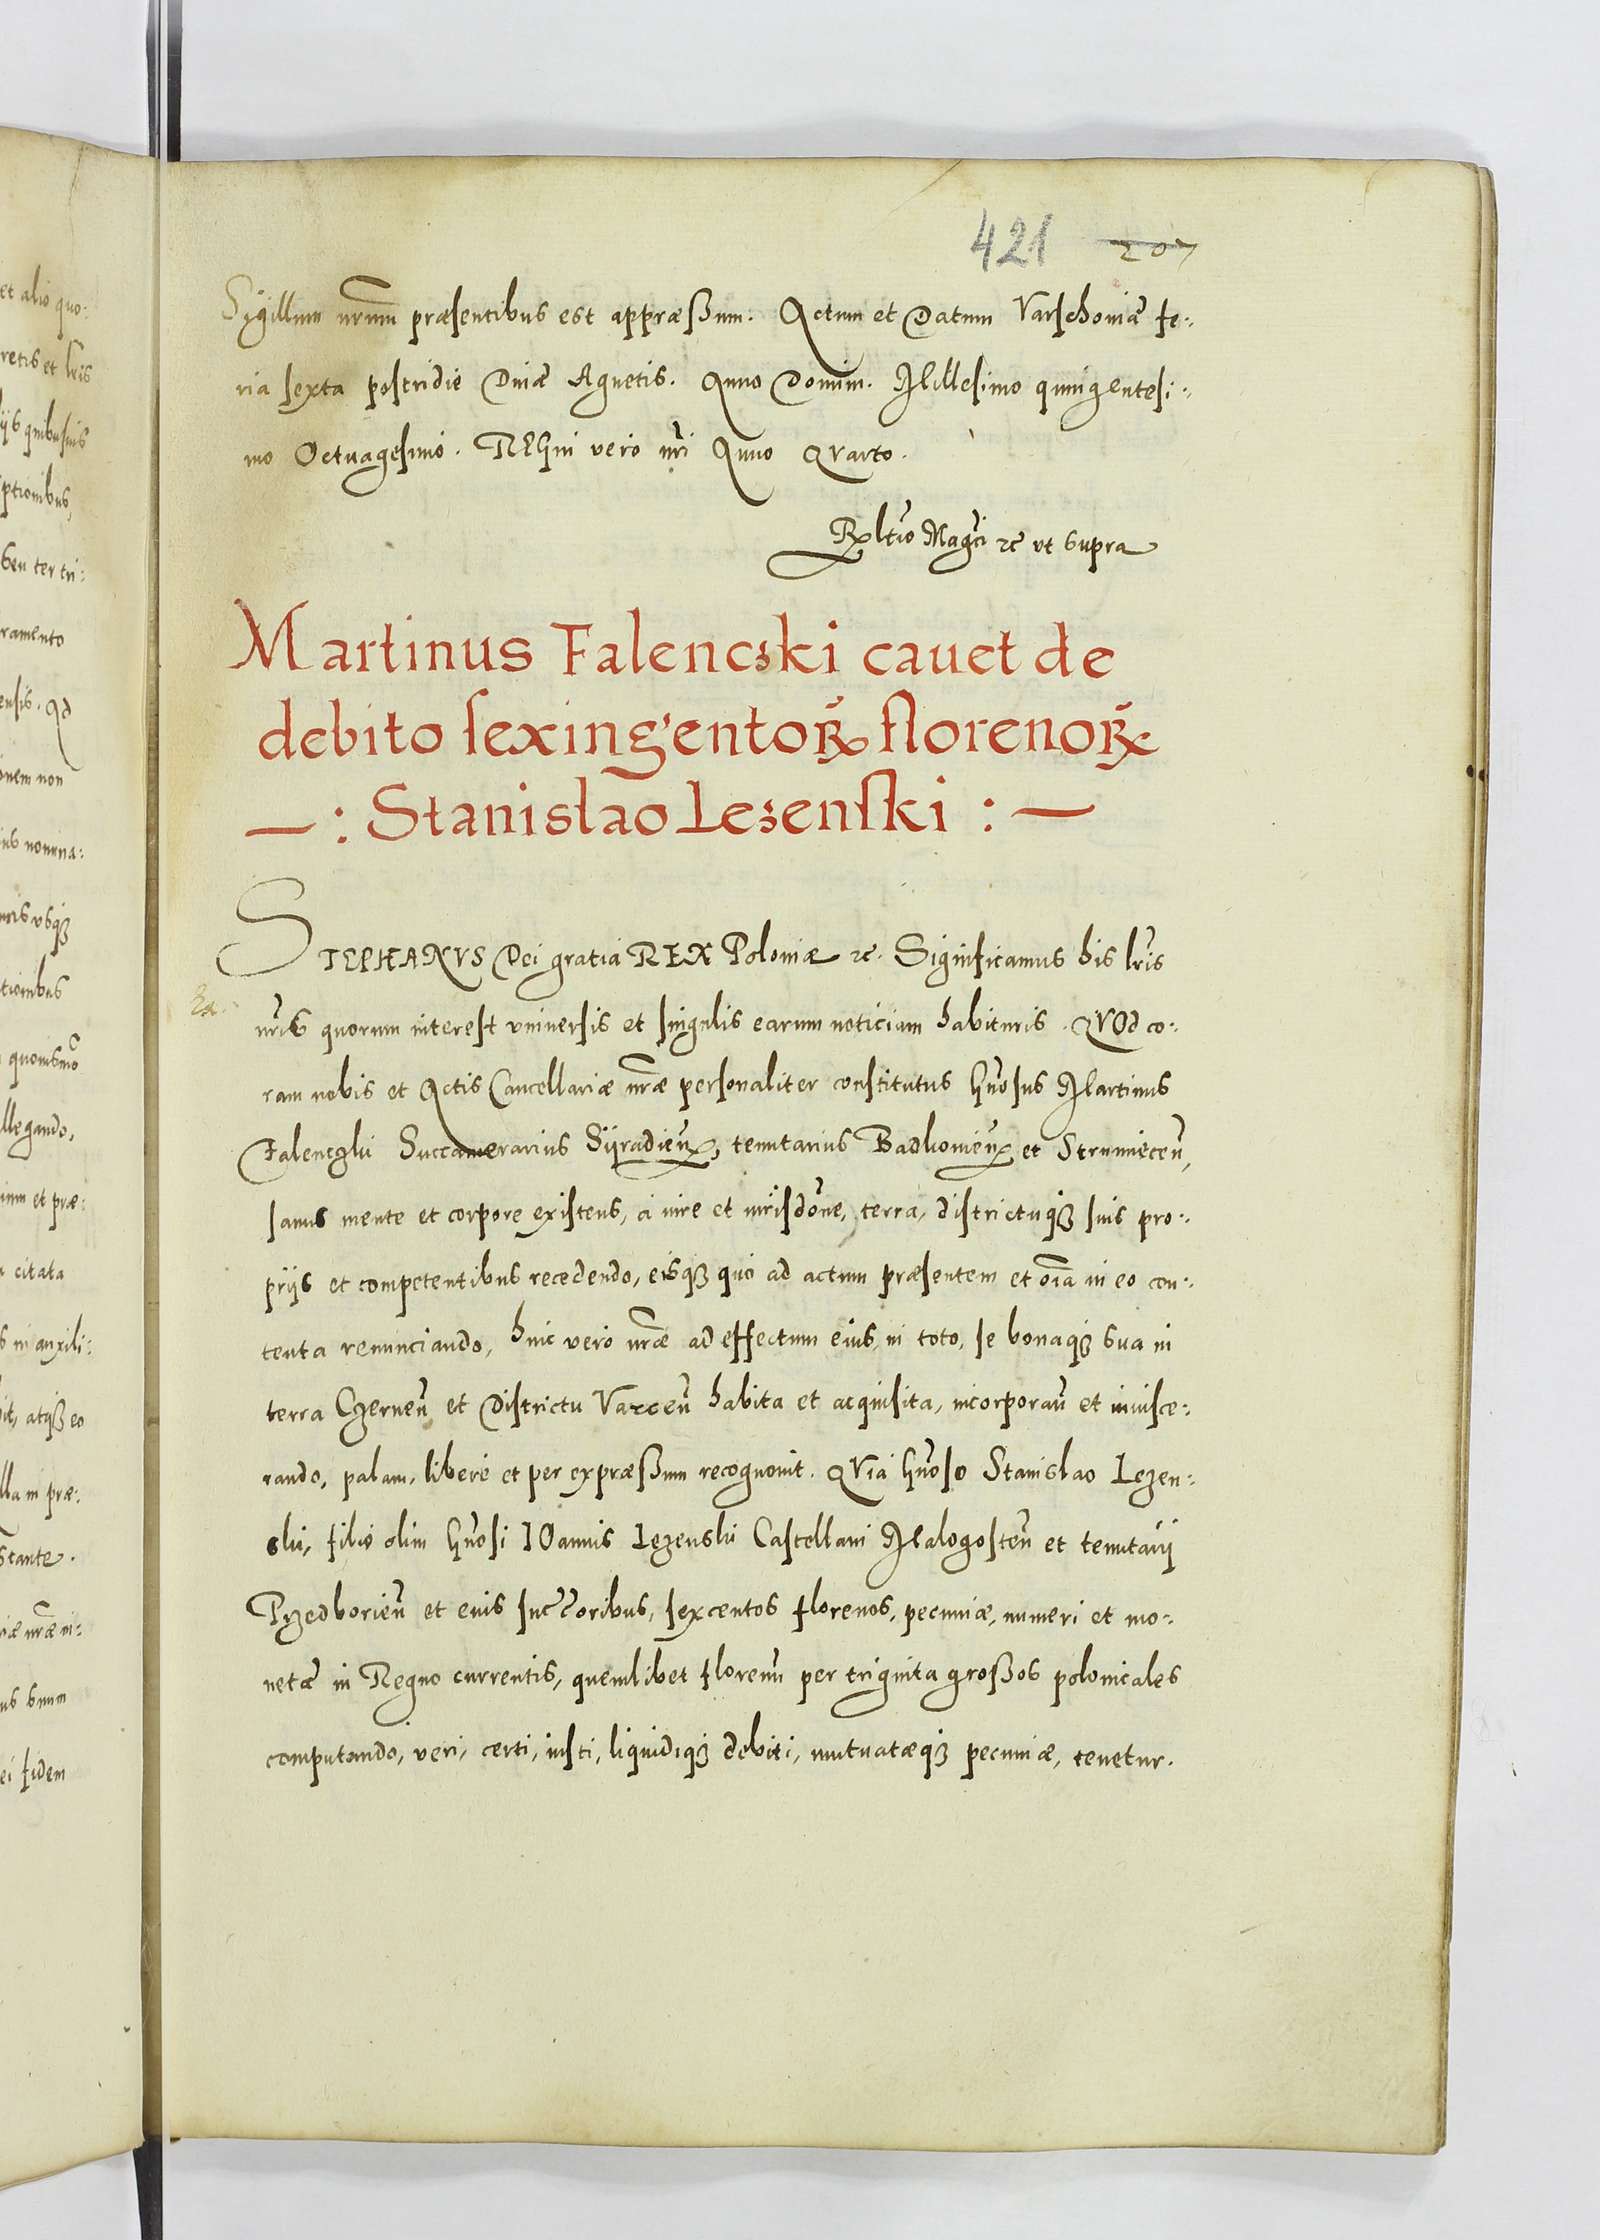 421 207
Sÿgillum nr̃um præsentibus est appræßum. Actum et Datum Varschoviæ fe:
ria sexta postridie Diuæ Agnetis. Anno Domini. Millesimo quingentesi:
mo Octuagesimo. REGni vero nr̃i Anno Qvarto.
Rltio Magci ꝛc̃ vt supra
Martinus Falencski cauet de
debito sexingentoꝝ florenoꝝ
—: Stanislao Lezenski :—
STEPHANVS Dei gratia REX Poloniæ ꝛc̃. Significamus his lr̃is
nr̃is quorum interest vniuersis et singulis earum noticiam habituris. QVOd co:
ram nobis et Actis Cancellariæ nr̃æ personaliter constitutus Gñosus Martinus
Falenczki Succamerarius Sÿradieñ, tenutarius Badkovieñ et Strumieceñ,
sanus mente et corpore existens, à iure et iurisdõne, terra, districtuqꝫ suis pro:
prijs et competentibus recedendo, eisqꝫ quò ad actum præsentem et oĩa in eo con:
tenta renunciando, huic vero nr̃æ ad effectum eius in toto, se bonaqꝫ sua in
terra Czerneñ et Districtu Varceñ habita et acquisita, incorporañ et inuisce:
rando, palam, liberè et per expræßum recognouit. QVia Gñoso Stanislao Lezen:
ski, filio olim Gñosi IOannis Lezenski Castellani Malogosteñ et tenutarij
Przedborieñ et eius succ̃oribus, sexcentos florenos, pecuniæ, numeri et mo:
netæ in Regno currentis, quemlibet florenũ per triginta großos polonicales
computando, veri, certi, iusti, liquidiqꝫ debiti, mutuatæqꝫ pecuniæ, tenetur.